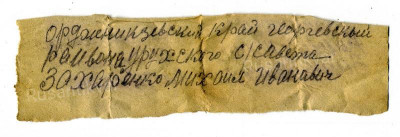 орджникизевский край георгевский
района урухского с/савета
Захаренко Михаил Иванавич